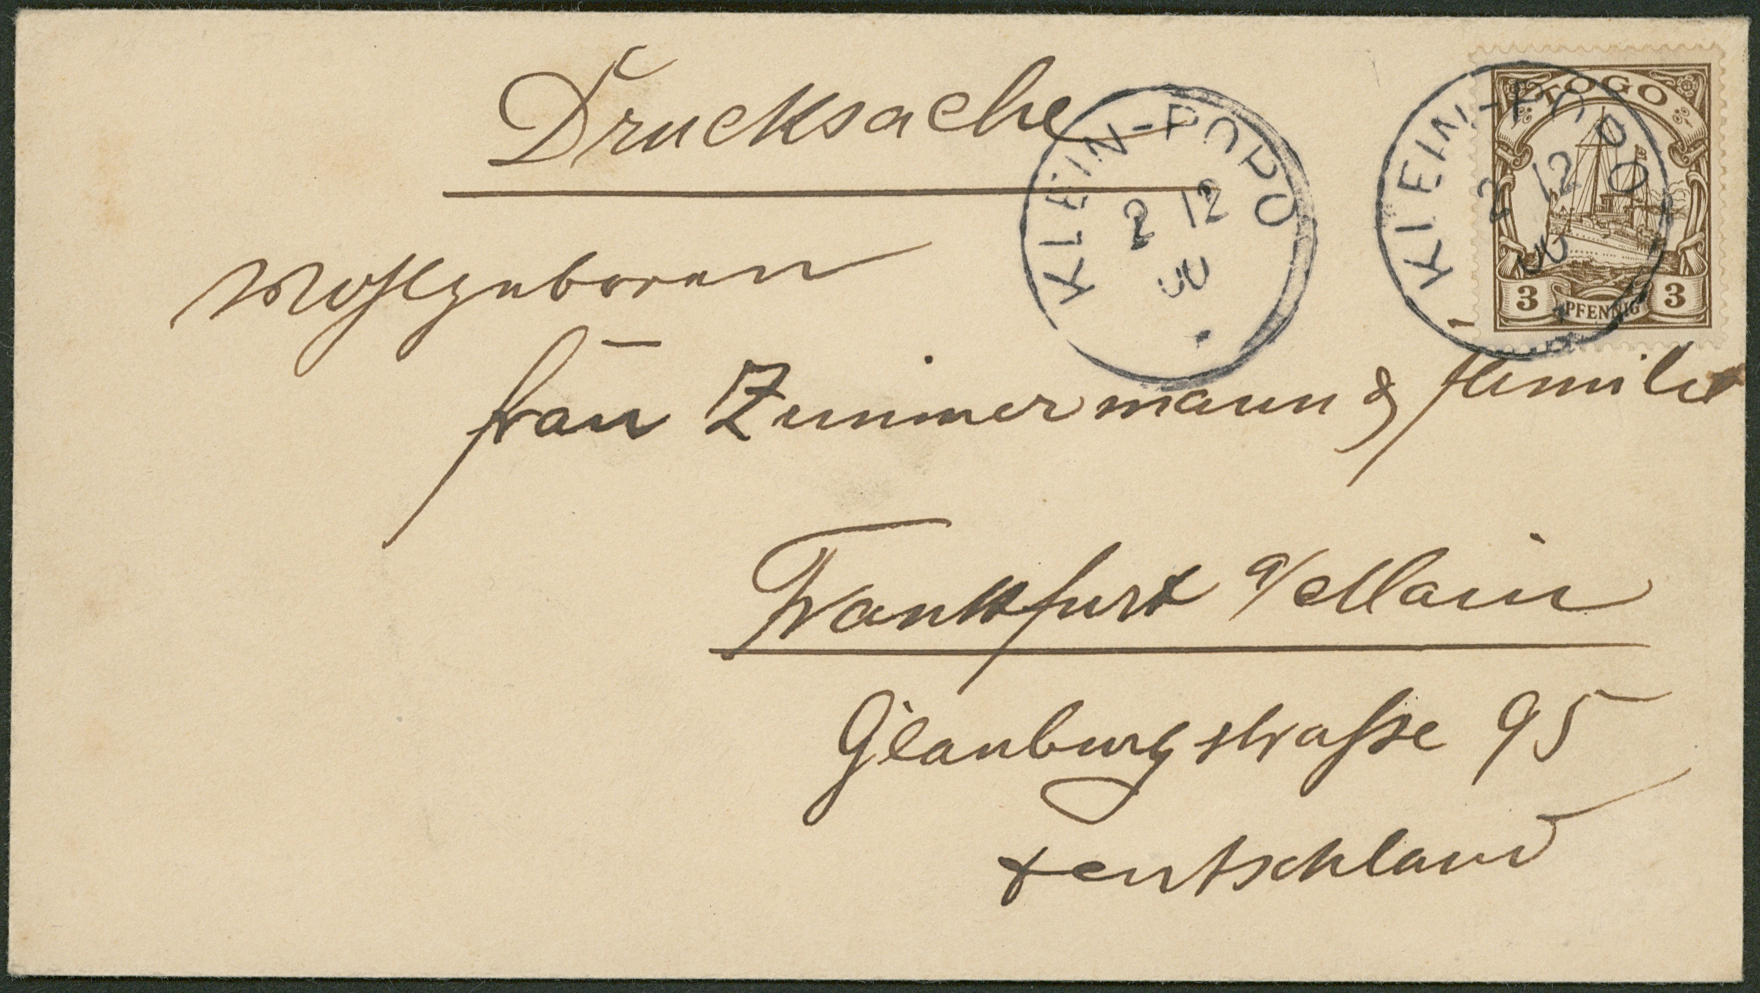 Drucksache
KLEIN-POPO
2 12
00
KLEIN-POPO
2 12
00
TOGO
3 PFENNIG 3
Wohlgeboren
Frau Zimmermann & Familie
Frankfurt a/Main
Glauburgstraße 95
Deutschland